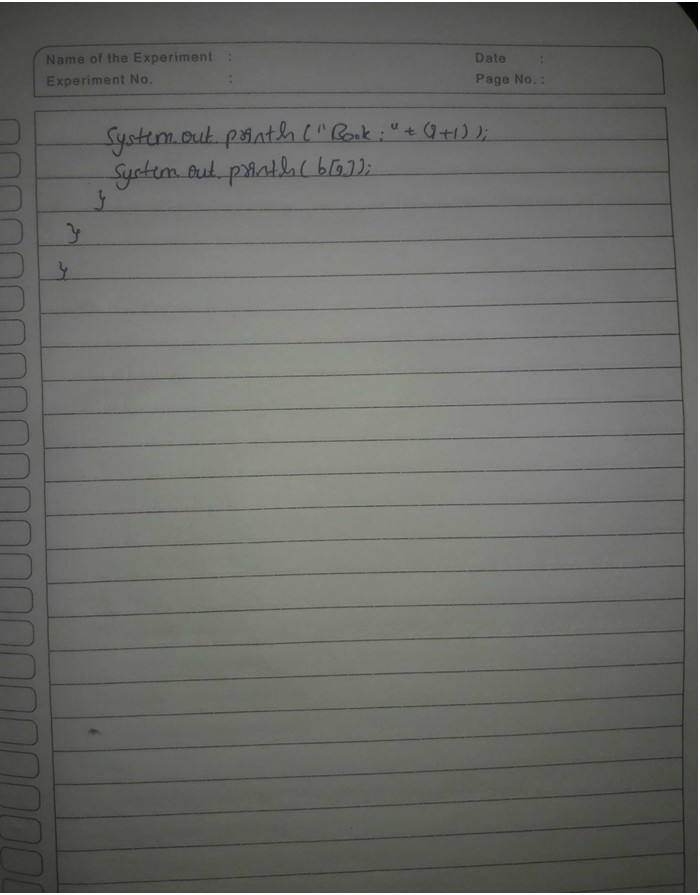 Name of the Experiment : Date :
Experiment No. : Page No. :
System.out.println("Book:" + (i+1));
System.out.println(b[i]);
}
}
}